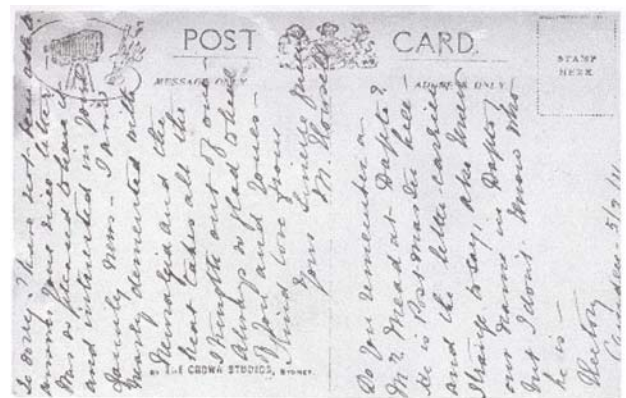 POST CARD
MESSAGE ONLY
ADDRESS ONLY
STAMP
HERE
BY THE CROWN STUDIOS, SYDNEY.
So sorry I have not been able to
answer your nice letter
was so pleased to have it
and interested in your
family news - I am
nearly demented with
Neuralgia and the
heat takes all the
strength out of one
Always so glad to hear
of you and yours -
Kind love from
Yours sincere friend
M.
Do you remember a
Mr Mead at Dapto?
He is Post Master here
and the letter-carrier
strange to say, also knew
our name in Dapto
but I don't know who
he is -
Rectory
Camden - 5/2/11